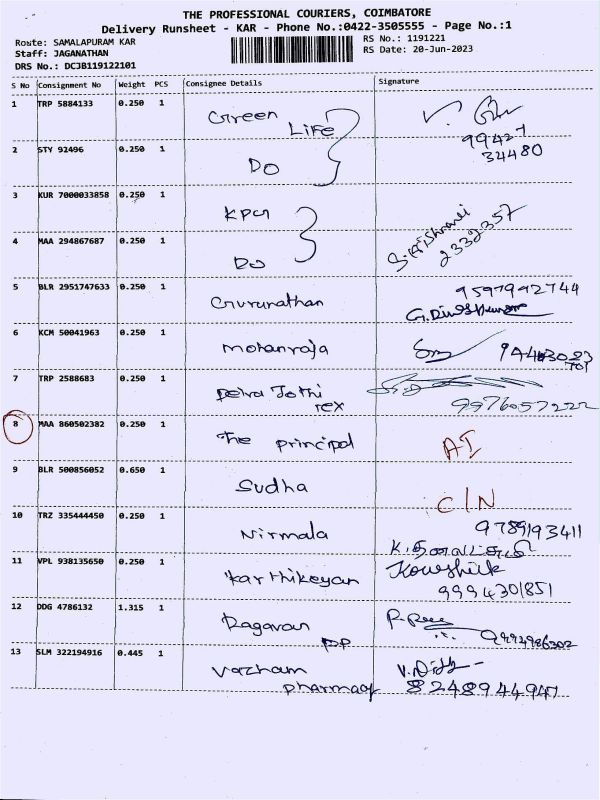 THE PROFESSIONAL COURIERS, COIMBATORE
Delivery Runsheet - KAR - Phone No.:0422-3505555 - Page No.:1
Route: SAMALAPURAM KAR
RS No.: 1191221
Staff: JAGANATHAN
RS Date: 20-Jun-2023
DRS No.: DCJB119122101
S No Consignment No Weight PCS Consignee Details Signature
1 TRP 5884133 0.250 1 Green Life
99427
34480
2 STY 92496 0.250 1 DO
3 KUR 7000033858 0.250 1 KPCR
2332357
4 MAA 294867687 0.250 1 DO
5 BLR 2951747633 0.250 1 Gurunathan 9597992744
6 KCM 50041963 0.250 1 Mohanraja
7 TRP 2588683 0.250 1 Deiva Jothi
rex 9976057222
8 MAA 860502382 0.250 1 The principal AI
9 BLR 500856052 0.650 1 Sudha C/N
10 TRZ 335444450 0.250 1 Nirmala 9789193411
11 VPL 938135650 0.250 1 Karthikeyan Kowshik
9994301851
12 DDG 4786132 1.315 1 Ragavan
PP 9994986302
13 SLM 322194916 0.445 1 Vazham
pharmacy 8248944947